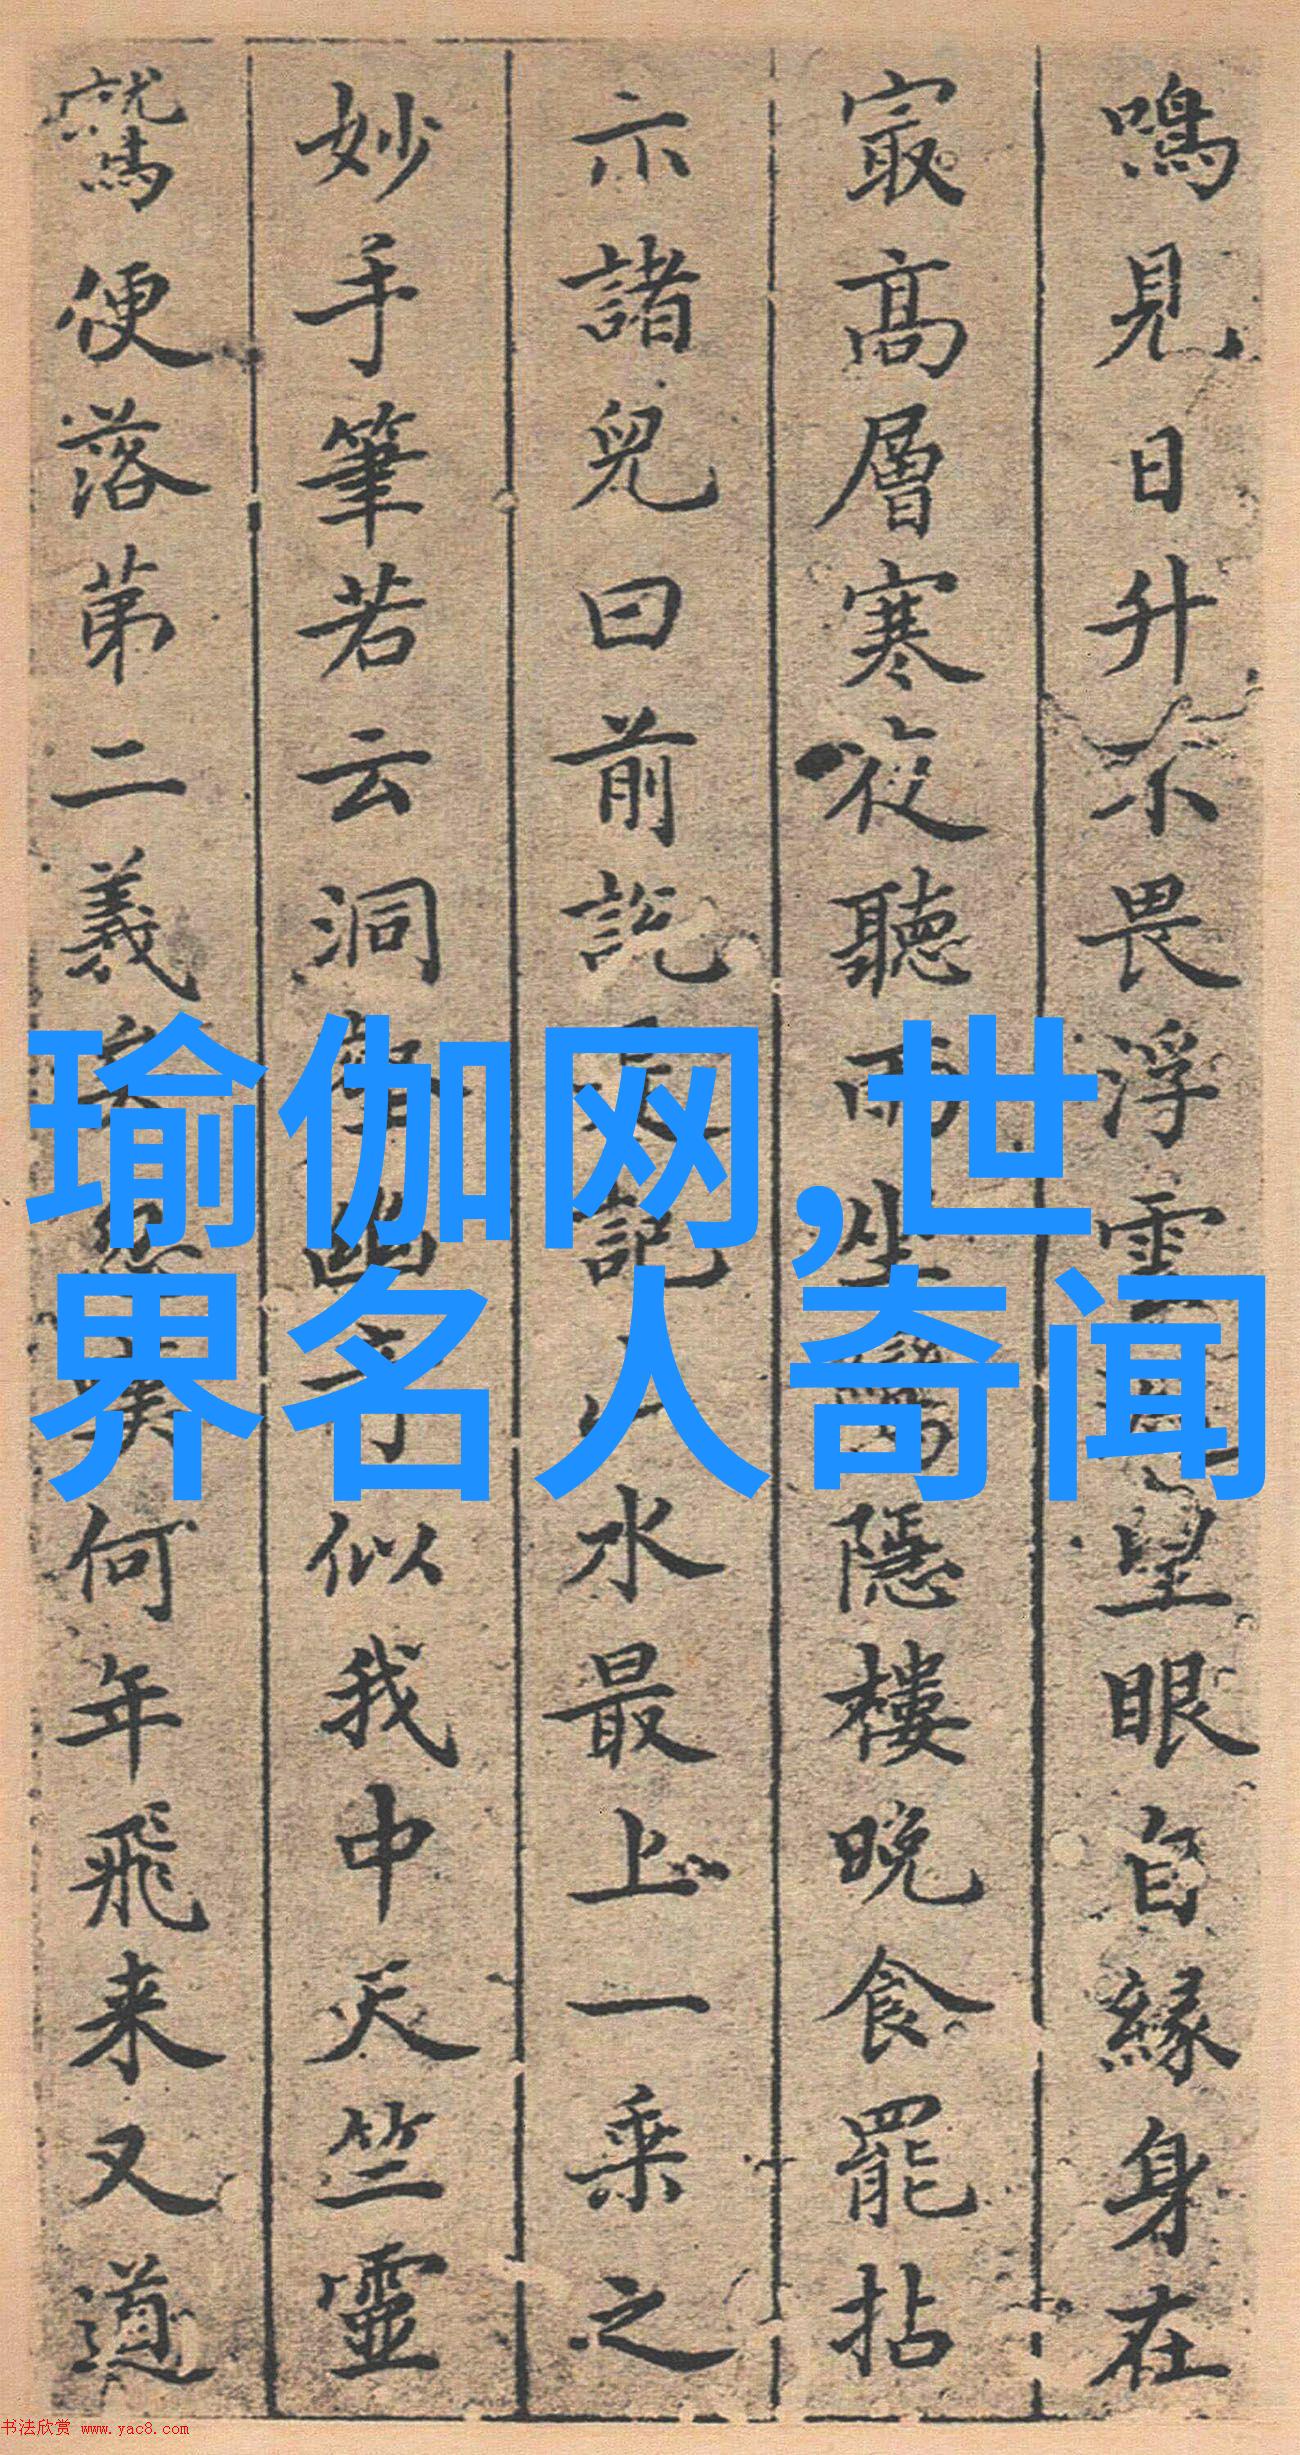 鳴見日升不畏浮雲望眼自緣身在
最高層寒夜聽雨隱樓晚食罷拈
示諸兒曰前説是記水最上一乘之
妙手筆若云洞似我中天竺靈
鷲便落第二義何年飛来又道
瑜伽网,世
界名人奇闻
书法欣赏 www.yac8.com